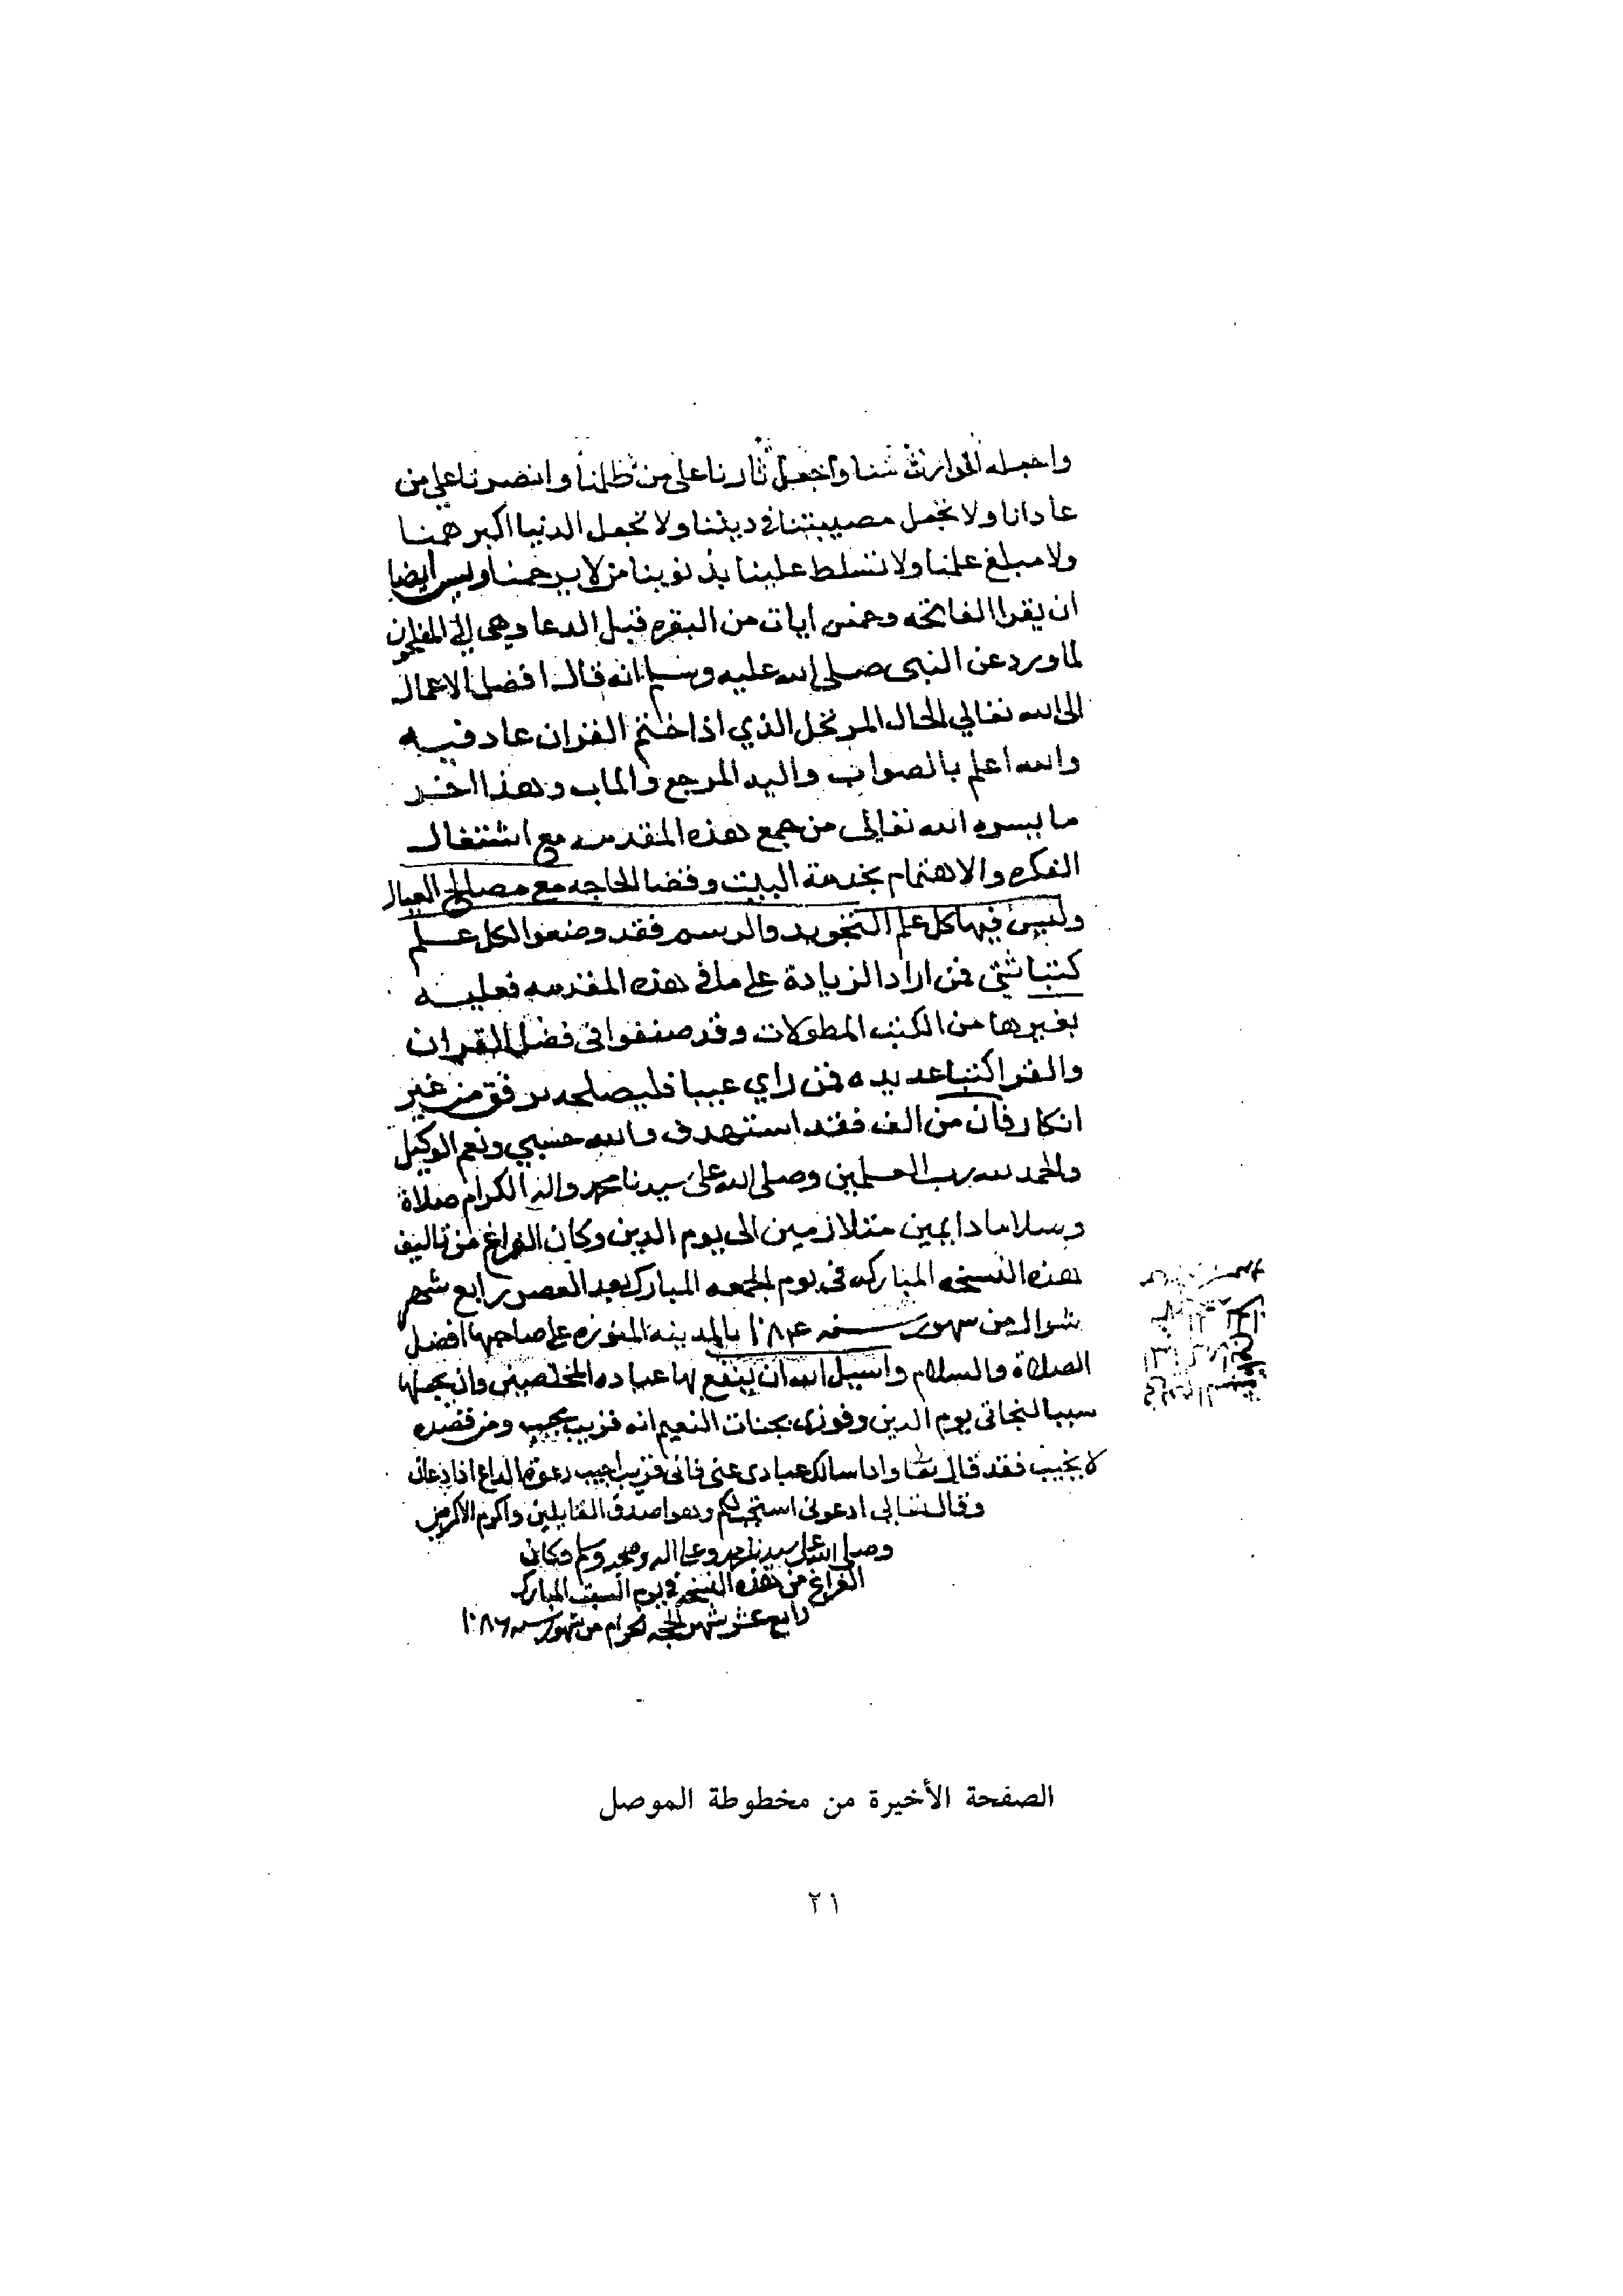 واجعله الوارث منا واجعل ثارنا على من ظلمنا وانصرنا على من
عادانا ولا تجعل مصيبتنا فى ديننا ولا تجعل الدنيا اكبر همنا
ولا مبلغ علمنا ولا تسلط علينا بذنوبنا من لا يرحمنا ويسن ايضا
ان يقرا الفاتحه وخمس ايات من البقره قبل الدعا وهى الى المفلحون
لما ورد عن النبى صلى الله عليه وسلم انه قال افضل الاعمال
الى الله تعالي الحال المرتحل الذي اذا ختم القران عاد فيه
والله اعلم بالصواب واليه المرجع والماب وهذا اخر
ما يسره الله تعالى من جمع هذه المقدمه مع اشتغال
الفكره والاهتمام بخدمة البيت وقضا الحاجه مع مصالح العيال
وليس فيها كل علم التجويد والرسم فقد وضعوا لكل علم
كتبا شتى فمن اراد الزيادة على ما فى هذه المقدمه فعليه
بغيرها من الكتب المطولات وقد صنفوا فى فضل القران
والقرا كتبا عديده فمن راي عيبا فليصلحه برفق من غير
انكار فان من الف فقد استهدف والله حسبي ونعم الوكيل
والحمد لله رب العلمين وصلى الله على سيدنا محمد واله الكرام صلاة
وسلاما دايمين متلازمين الى يوم الدين وكان الفراغ من تاليف
هذه النسخه المباركه فى يوم الجمعه المبارك بعد العصر رابع شهر
شوال من شهور سنه ١٠٨٤ بالمدينه المنوره على صاحبها افضل
الصلاة والسلام واسيل الله ان ينفع بها عباده المخلصين وان يجعلها
سببا لنجاتى يوم الدين وفوزى بجنات النعيم انه قريب مجيب ومن قصده
لا يخيب فقد قال تعا واذا سالك عبادى عنى فانى قريب اجيب دعوة الداع اذا دعان
وقال تعالى ادعونى استجب لكم وهو اصدق القايلين واكرم الاكرمين
وصلى الله على سيدنا محمد وعلى اله وصحبه وسلم وكان
الفراغ من هذه النسخه فى يوم السبت المبارك
رابع عشر شهر الحجه الحرام من شهور سنه ١٠٨٦
الصفحة الأخيرة من مخطوطة الموصل
٢١